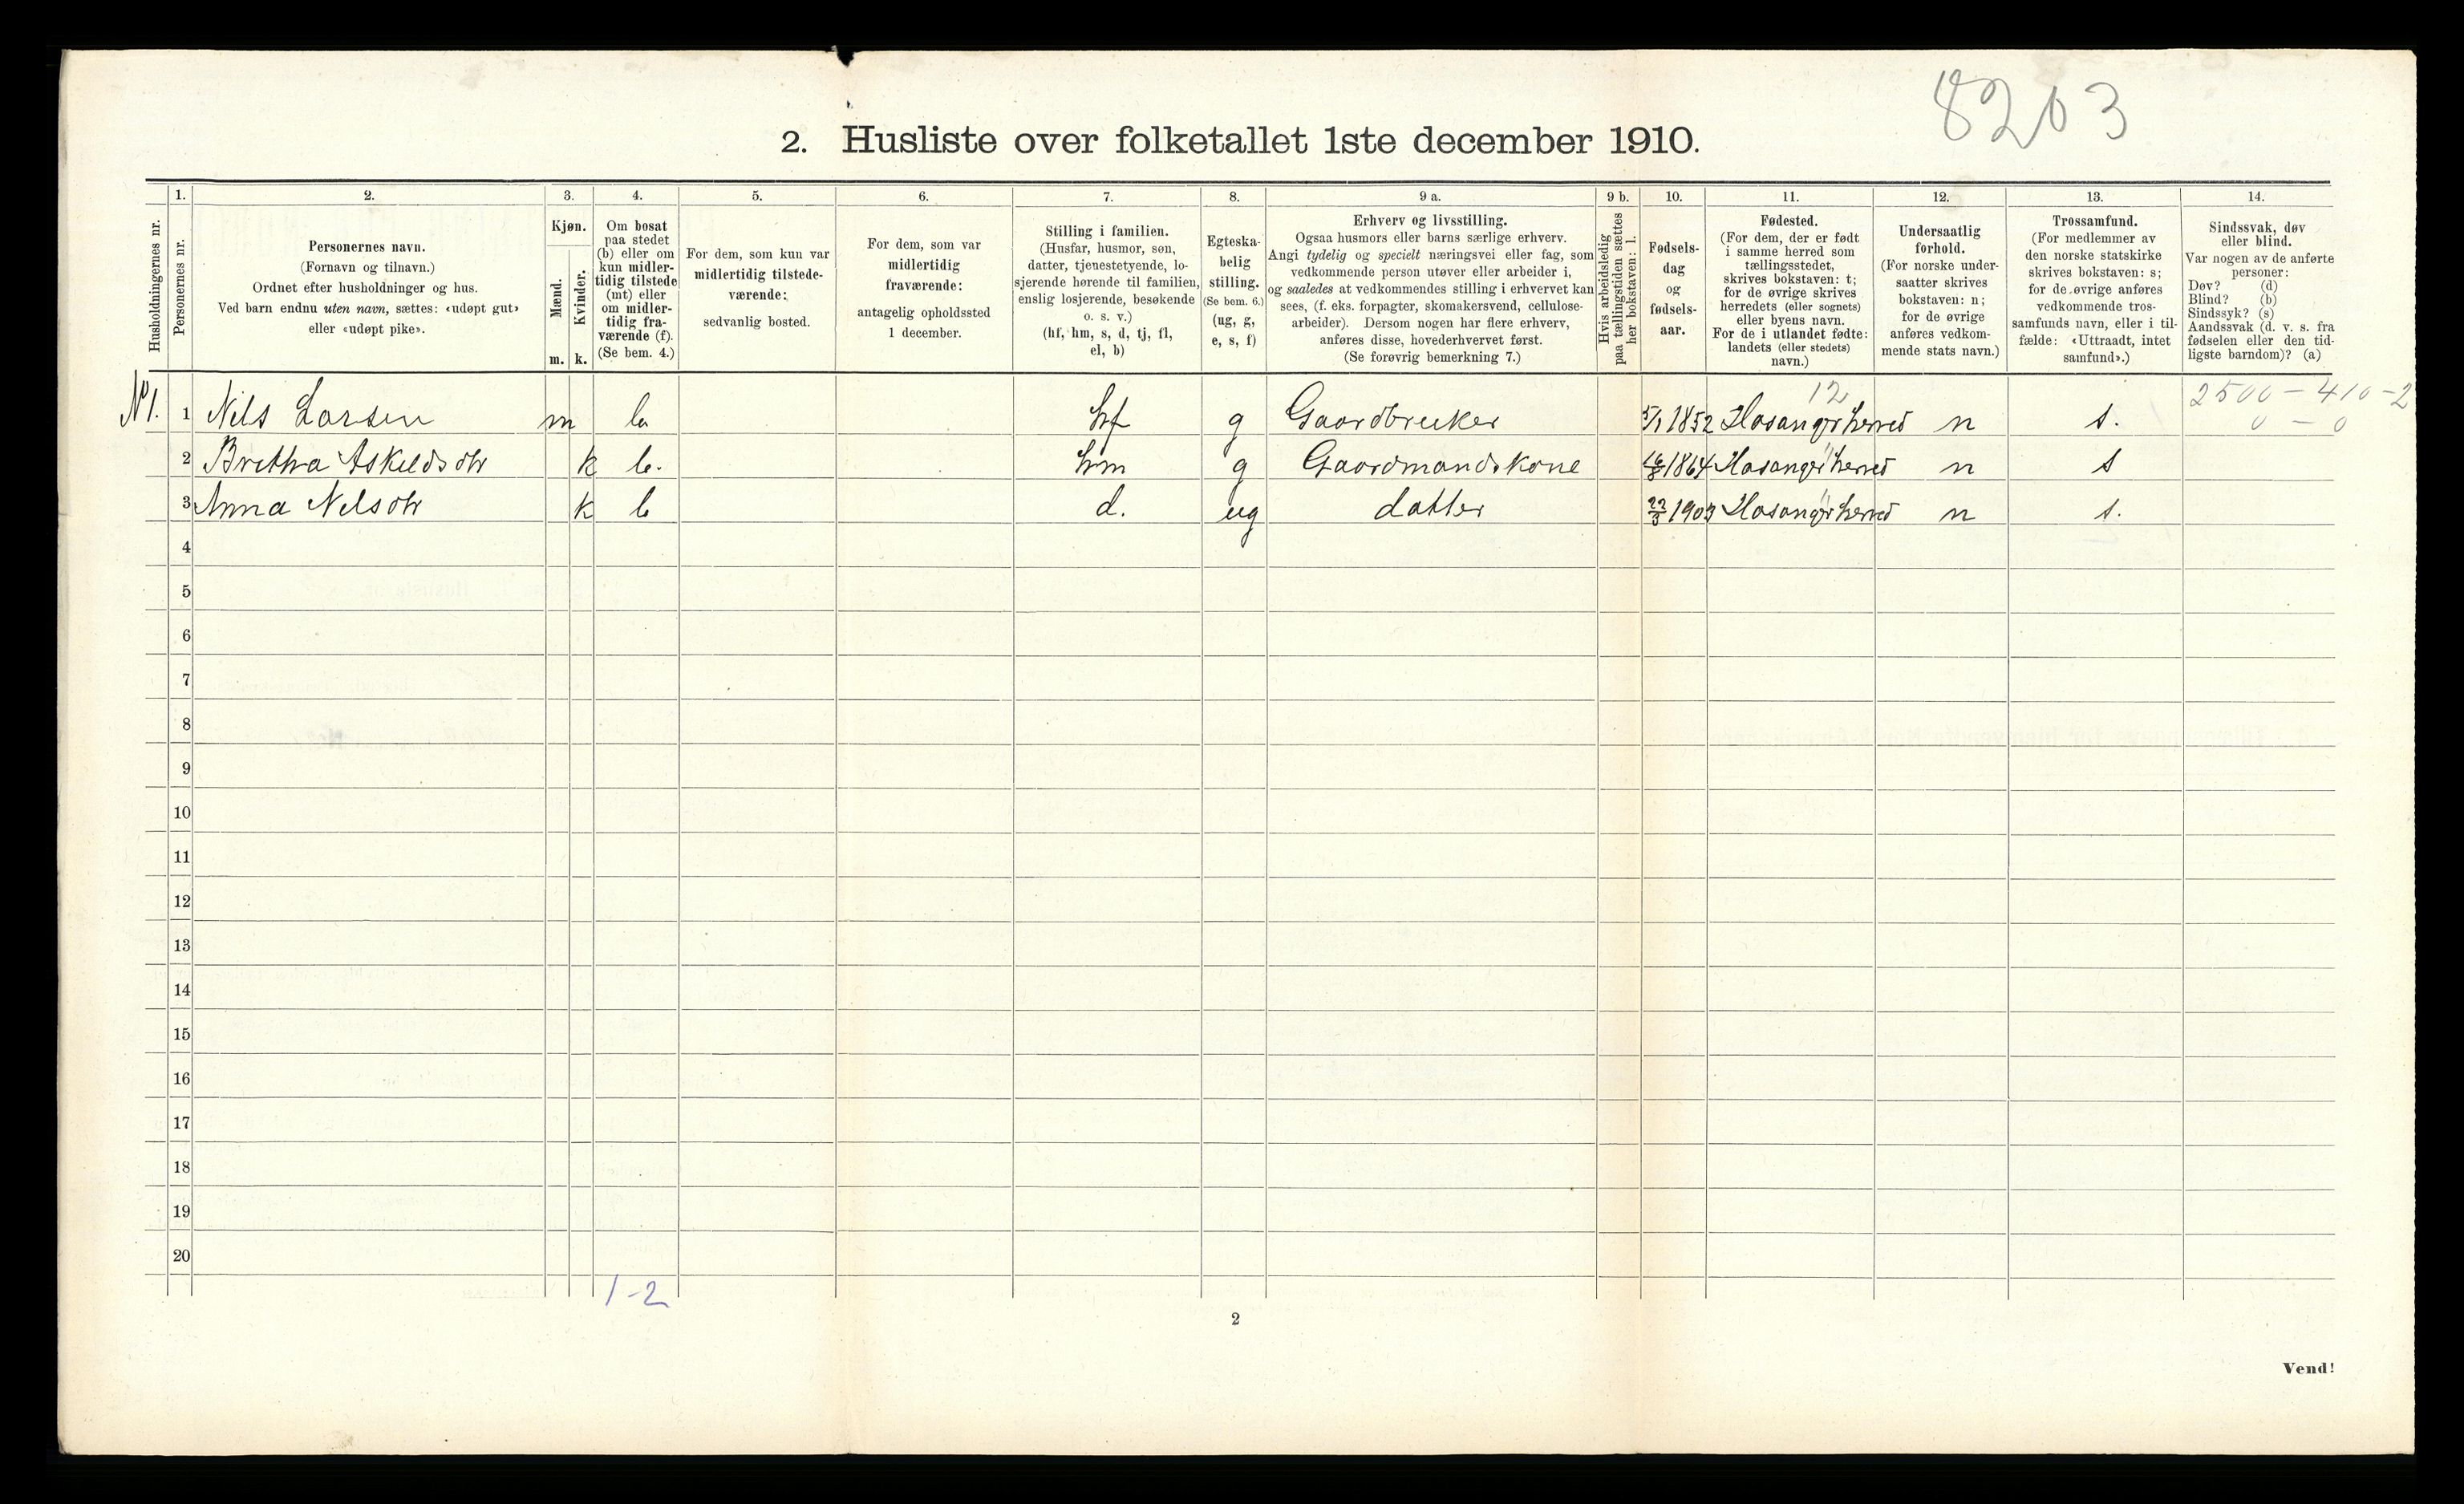 8203
2. Husliste over folketallet 1ste december 1910.
1. 2. 3. 4. 5. 6. 7. 8. 9 a. 9 b. 10. 11. 12. 13. 14.
Husholdningernes nr.
Personernes nr.
Personernes navn.
(Fornavn og tilnavn.)
Ordnet efter husholdninger og hus.
Ved barn endnu uten navn, sættes: «udøpt gut»
eller «udøpt pike».
Kjøn.
Mænd.
Kvinder.
m. k.
Om bosat
paa stedet
(b) eller om
kun midler-
tidig tilstede
(mt) eller
om midler-
tidig fra-
værende (f).
(Se bem. 4.)
For dem, som kun var
midlertidig tilstede-
værende:
sedvanlig bosted.
For dem, som var
midlertidig
fraværende:
antagelig opholdssted
1 december.
Stilling i familien.
(Husfar, husmor, søn,
datter, tjenestetyende, lo-
sjerende hørende til familien,
enslig losjerende, besøkende
o. s. v.)
(hf, hm, s, d, tj, fl,
el, b)
Egteska-
belig
stilling.
(Se bem. 6.)
(ug, g,
e, s, f)
Erhverv og livsstilling.
Ogsaa husmors eller barns særlige erhverv.
Angi tydelig og specielt næringsvei eller fag, som
vedkommende person utøver eller arbeider i,
og saaledes at vedkommendes stilling i erhvervet kan
sees, (f. eks. forpagter, skomakersvend, cellulose-
arbeider). Dersom nogen har flere erhverv,
anføres disse, hovederhvervet først.
(Se forøvrig bemerkning 7.)
Hvis arbeidsledig
paa tællingstiden sættes
her bokstaven: l.
Fødsels-
dag
og
fødsels-
aar.
Fødested.
(For dem, der er født
i samme herred som
tællingsstedet,
skrives bokstaven: t;
for de øvrige skrives
herredets (eller sognets)
eller byens navn.
For de i utlandet fødte:
landets (eller stedets)
navn.)
Undersaatlig
forhold.
(For norske under-
saatter skrives
bokstaven: n;
for de øvrige
anføres vedkom-
mende stats navn.)
Trossamfund.
(For medlemmer av
den norske statskirke
skrives bokstaven: s;
for de øvrige anføres
vedkommende tros-
samfunds navn, eller i til-
fælde: «Uttraadt, intet
samfund».)
Sindssvak, døv
eller blind.
Var nogen av de anførte
personer:
Døv? (d)
Blind? (b)
Sindssyk? (s)
Aandssvak (d. v. s. fra
fødselen eller den tid-
ligste barndom)? (a)
12 2500 - 410 - 2
0 - 0
No 1. 1 Nils Larsen m b hf g Gaardbruker 5/1 1852 Hosanger herred n s.
2 Bretha Askeldsdtr k b. hm g Gaardmandskone 1864 Hosanger herred n s
3 Anna Nelsdtr k b d. ug datter 1903 Hosanger herred n s.
4
5
6
7
8
9
10
11
12
13
14
15
16
17
18
19
20
1-2
2
Vend!